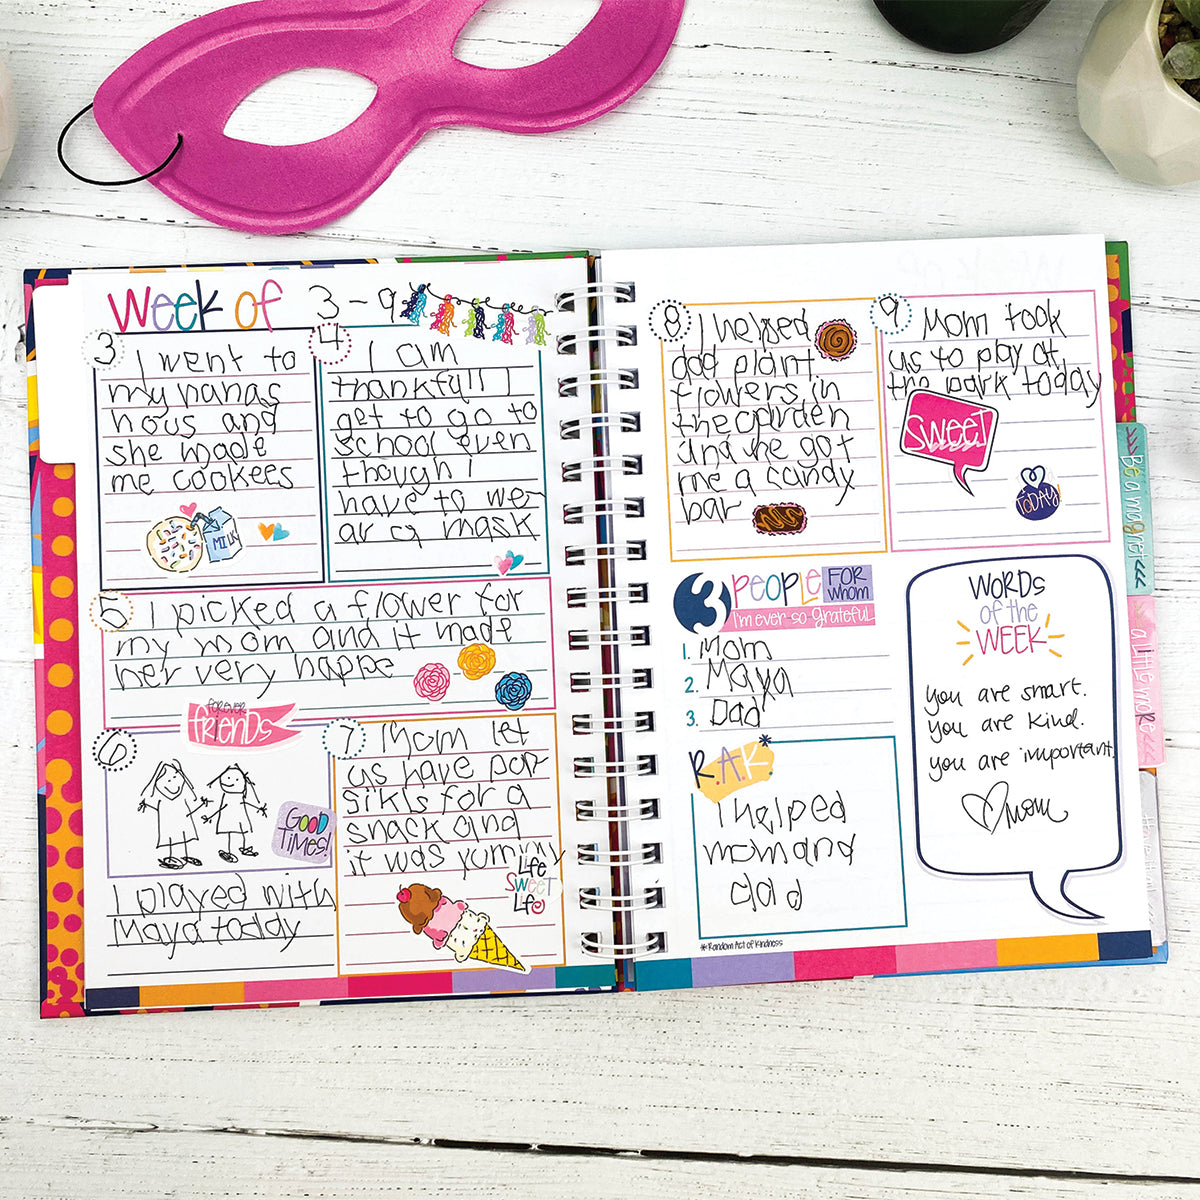 Week of 3-9
3
I went to
my nanas
hous and
she made
me cookees
MILK
4
I am
thankfull I
get to go to
school even
though I
have to we-
ar a mask
5 I picked a flower for
my mom and it made
her very happe
6
forever
friends
GOOD
TIMES!
I played with
Maya today
7 Mom let
us have pop
sikls for a
snack and
it was yummy
Life
SWEET
Life
8 I helped
dad plant
flowers in
the garden
and he got
me a candy
bar
9 Mom took
us to play at
the park today
SWEET
TODAY!
3 PEOPLE FOR WHOM
I'm ever-so-grateful
1. Mom
2. Maya
3. Dad
R.A.K*
I helped
mom and
dad
*Random Act of Kindness
WORDS
of the
WEEK
you are smart.
you are kind.
you are important.
mom
Be a magnet
a little more